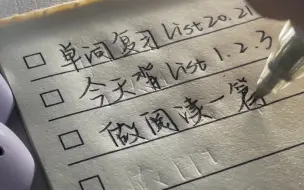 单词复习list 20.21
今天背list 1.2.3
做阅读一篇